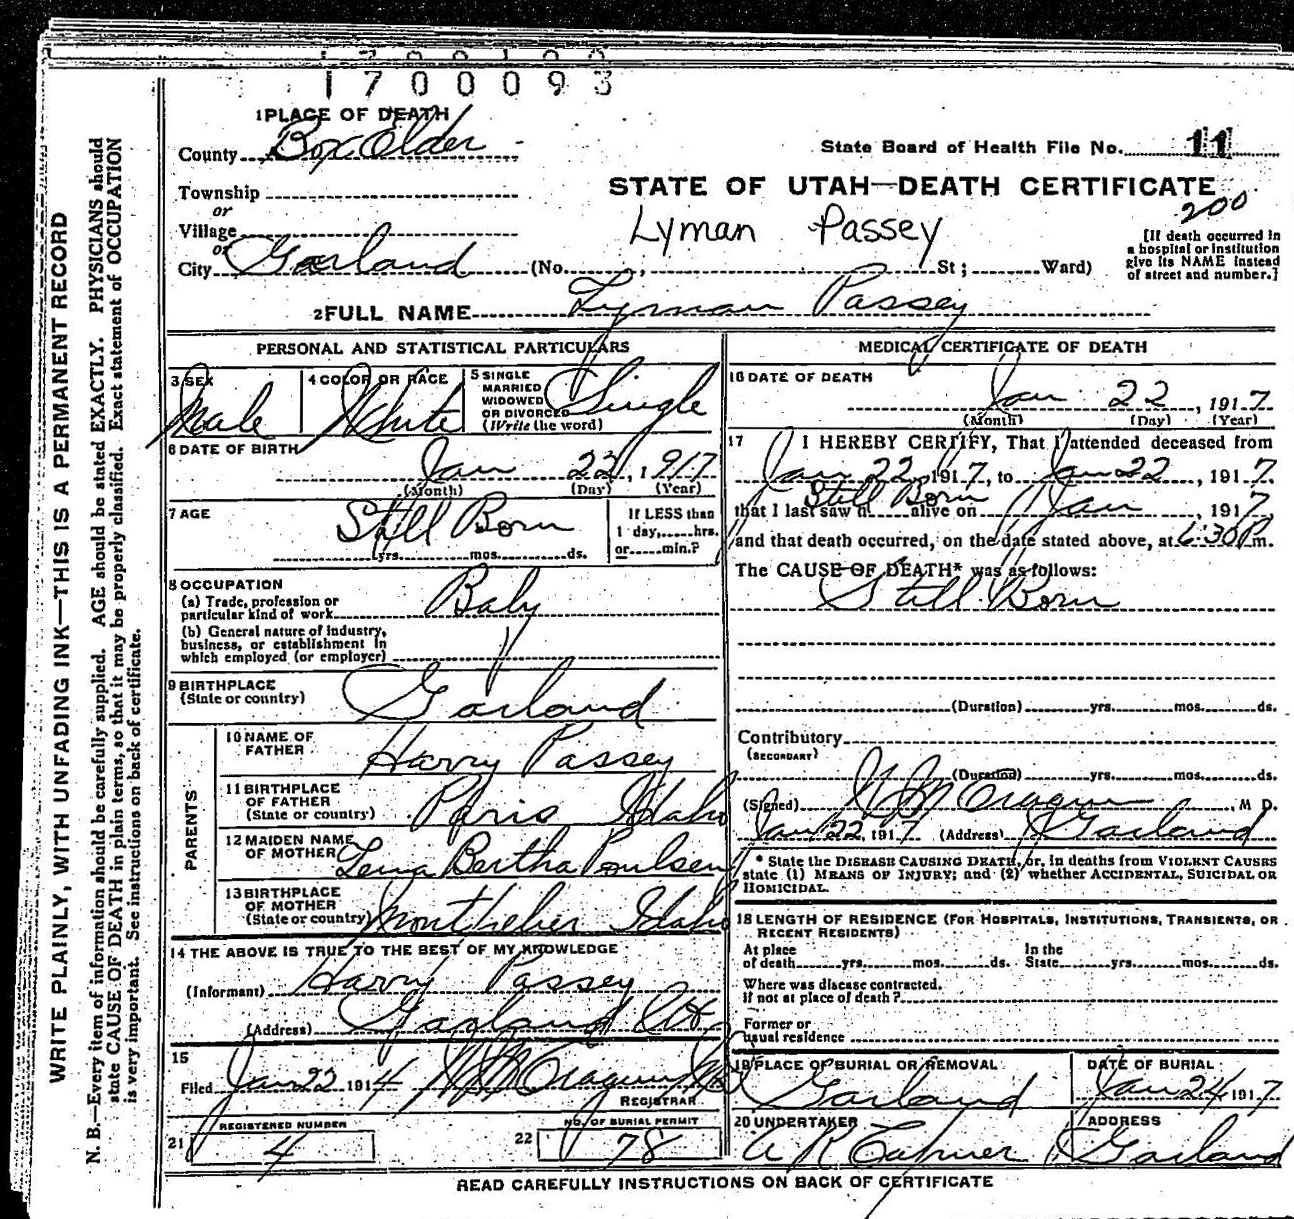 1700093
1 PLACE OF DEATH
County Box Elder
State Board of Health File No. 11
Township
or
Village
or
City Garland (No. , St ; Ward)
STATE OF UTAH—DEATH CERTIFICATE
200
Lyman Passey
[If death occurred in
a hospital or institution
give its NAME instead
of street and number.]
2 FULL NAME Lyman Passey
PERSONAL AND STATISTICAL PARTICULARS
3 SEX
Male
4 COLOR OR RACE
White
5 SINGLE
MARRIED
WIDOWED
OR DIVORCED
(Write the word)
Single
6 DATE OF BIRTH
Jan 22, 1917
(Month) (Day) (Year)
7 AGE
Still Born
yrs. mos. ds.
If LESS than
1 day, hrs.
or min.?
8 OCCUPATION
(a) Trade, profession or
particular kind of work
Baby
(b) General nature of industry,
business, or establishment in
which employed (or employer)
9 BIRTHPLACE
(State or country)
Garland
PARENTS
10 NAME OF
FATHER
Harry Passey
11 BIRTHPLACE
OF FATHER
(State or country)
Paris Idaho
12 MAIDEN NAME
OF MOTHER
Lena Bertha Poulsen
13 BIRTHPLACE
OF MOTHER
(State or country)
Montpelier Idaho
14 THE ABOVE IS TRUE TO THE BEST OF MY KNOWLEDGE
(Informant) Harry Passey
(Address) Garland Ut
15
Filed Jan 22 1914 W M Cragun
REGISTRAR
21
REGISTERED NUMBER
4
22
NO. OF BURIAL PERMIT
78
MEDICAL CERTIFICATE OF DEATH
16 DATE OF DEATH
Jan 22, 1917
(Month) (Day) (Year)
17 I HEREBY CERTIFY, That I attended deceased from
Jan 22, 1917, to Jan 22, 1917.
Still Born
that I last saw h alive on Jan, 1917
and that death occurred, on the date stated above, at 6:30 P m.
The CAUSE OF DEATH* was as follows:
Still Born
(Duration) yrs. mos. ds.
Contributory
(SECONDARY)
(Duration) yrs. mos. ds.
(Signed) W M Cragun M D.
Jan 22 1917 (Address) Garland
* State the DISEASE CAUSING DEATH, or, in deaths from VIOLENT CAUSES
state (1) MEANS OF INJURY; and (2) whether ACCIDENTAL, SUICIDAL OR
HOMICIDAL.
18 LENGTH OF RESIDENCE (FOR HOSPITALS, INSTITUTIONS, TRANSIENTS, OR
RECENT RESIDENTS)
At place
of death yrs. mos. ds.
In the
State yrs. mos. ds.
Where was disease contracted,
If not at place of death?
Former or
usual residence
19 PLACE OF BURIAL OR REMOVAL
Garland
DATE OF BURIAL
Jan 24, 1917
20 UNDERTAKER
A R Capner
ADDRESS
Garland
READ CAREFULLY INSTRUCTIONS ON BACK OF CERTIFICATE
WRITE PLAINLY, WITH UNFADING INK—THIS IS A PERMANENT RECORD
N. B.—Every item of information should be carefully supplied. AGE should be stated EXACTLY. PHYSICIANS should
state CAUSE OF DEATH in plain terms, so that it may be properly classified. Exact statement of OCCUPATION
is very important. See instructions on back of certificate.